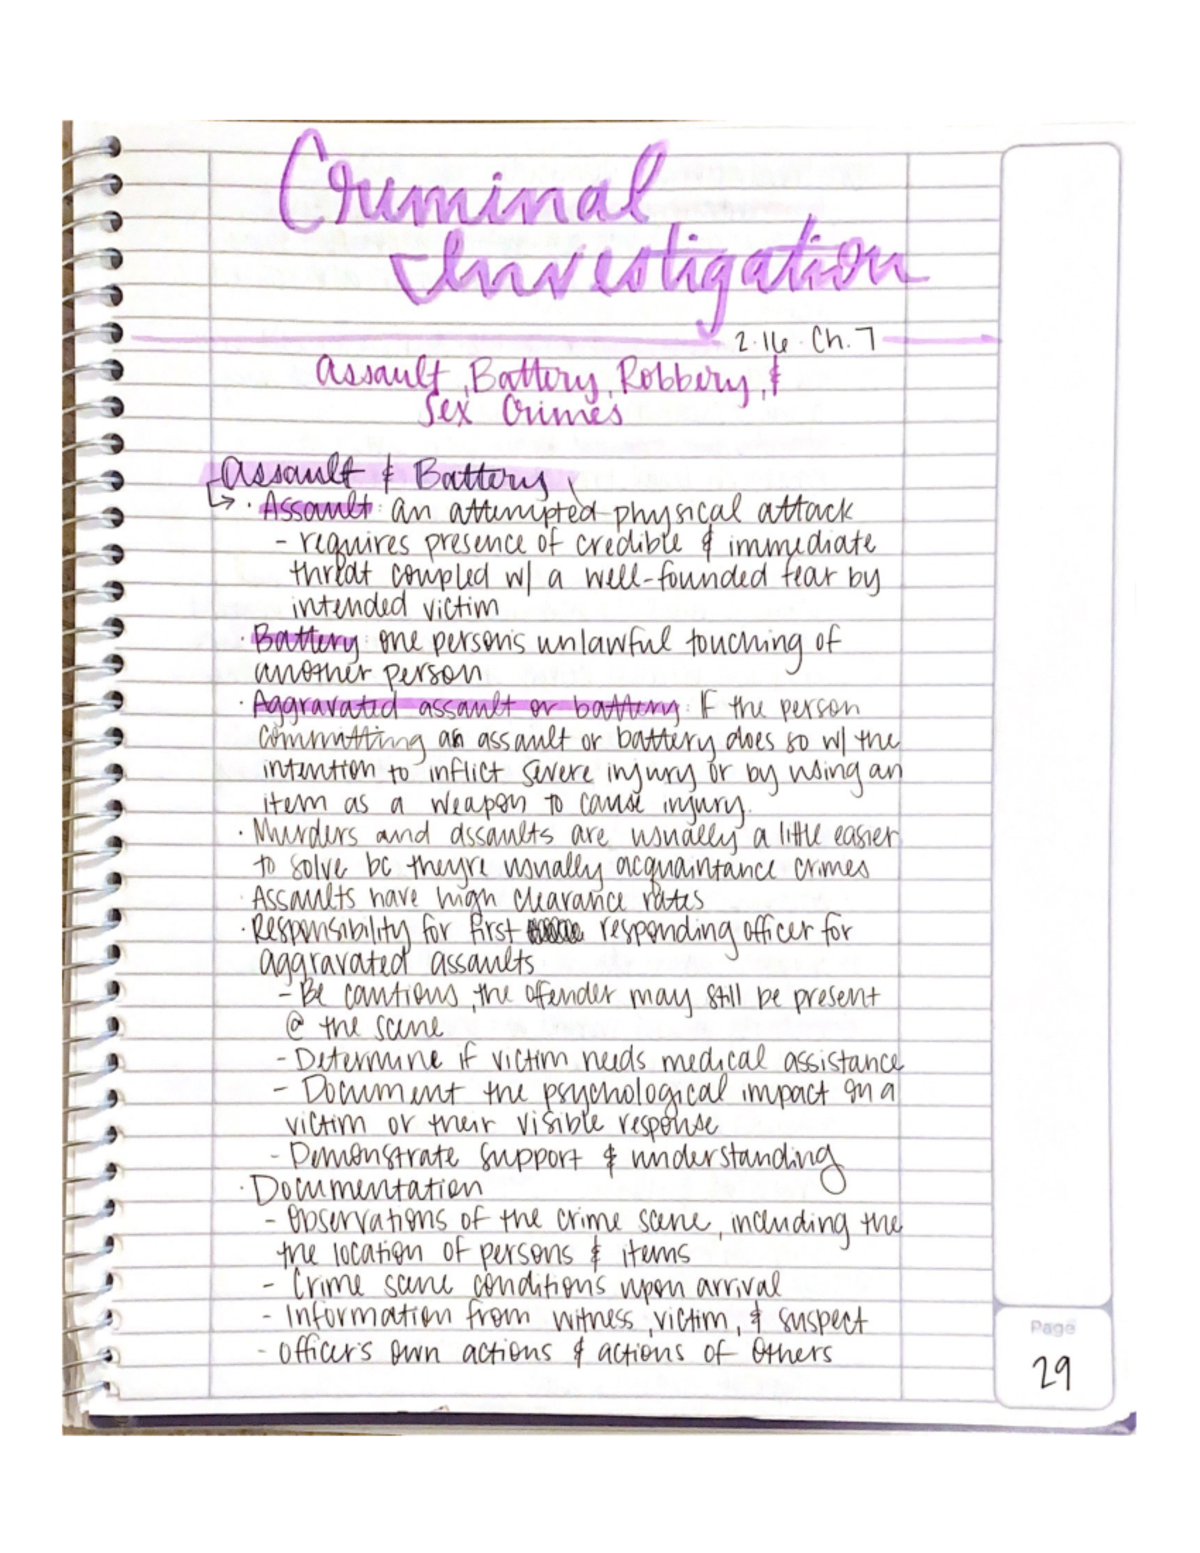 Criminal
Investigation
2.16. Ch. 7
Assault, Battery, Robbery, &
Sex Crimes
Assault & Battery
→ · Assault: an attempted physical attack
- requires presence of credible & immediate
threat coupled w/ a well-founded fear by
intended victim
· Battery: one person's unlawful touching of
another person
· Aggravated assault or battery: If the person
committing an assault or battery does so w/ the
intention to inflict severe injury or by using an
item as a weapon to cause injury.
· Murders and assaults are usually a little easier
to solve bc theyre usually acquaintance crimes
· Assaults have high clearance rates
· Responsibility for first responding officer for
aggravated assaults
- Be cautious, the offender may still be present
@ the scene
- Determine if victim needs medical assistance
- Document the psychological impact on a
victim or their visible response
- Demonstrate support & understanding
· Documentation
- Observations of the crime scene, including the
the location of persons & items
- Crime scene conditions upon arrival
- Information from witness, victim, & suspect
- Officer's own actions & actions of others
Page
29